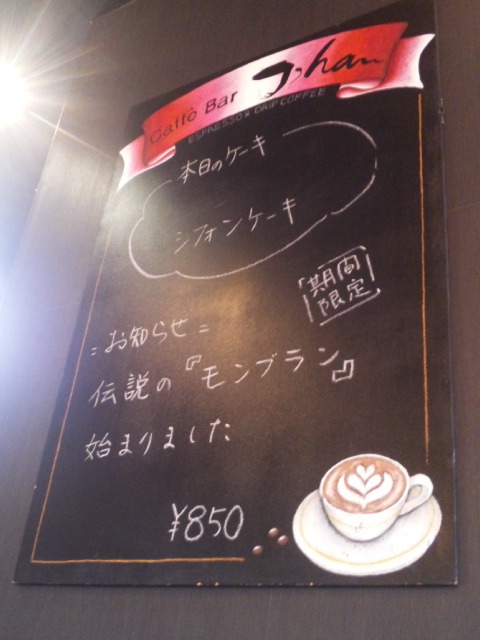 Caffè Bar Johan
ESPRESSO & DRIP COFFEE
本日のケーキ
シフォンケーキ
期間
限定
=お知らせ=
伝説の『モンブラン』
始まりました
¥850